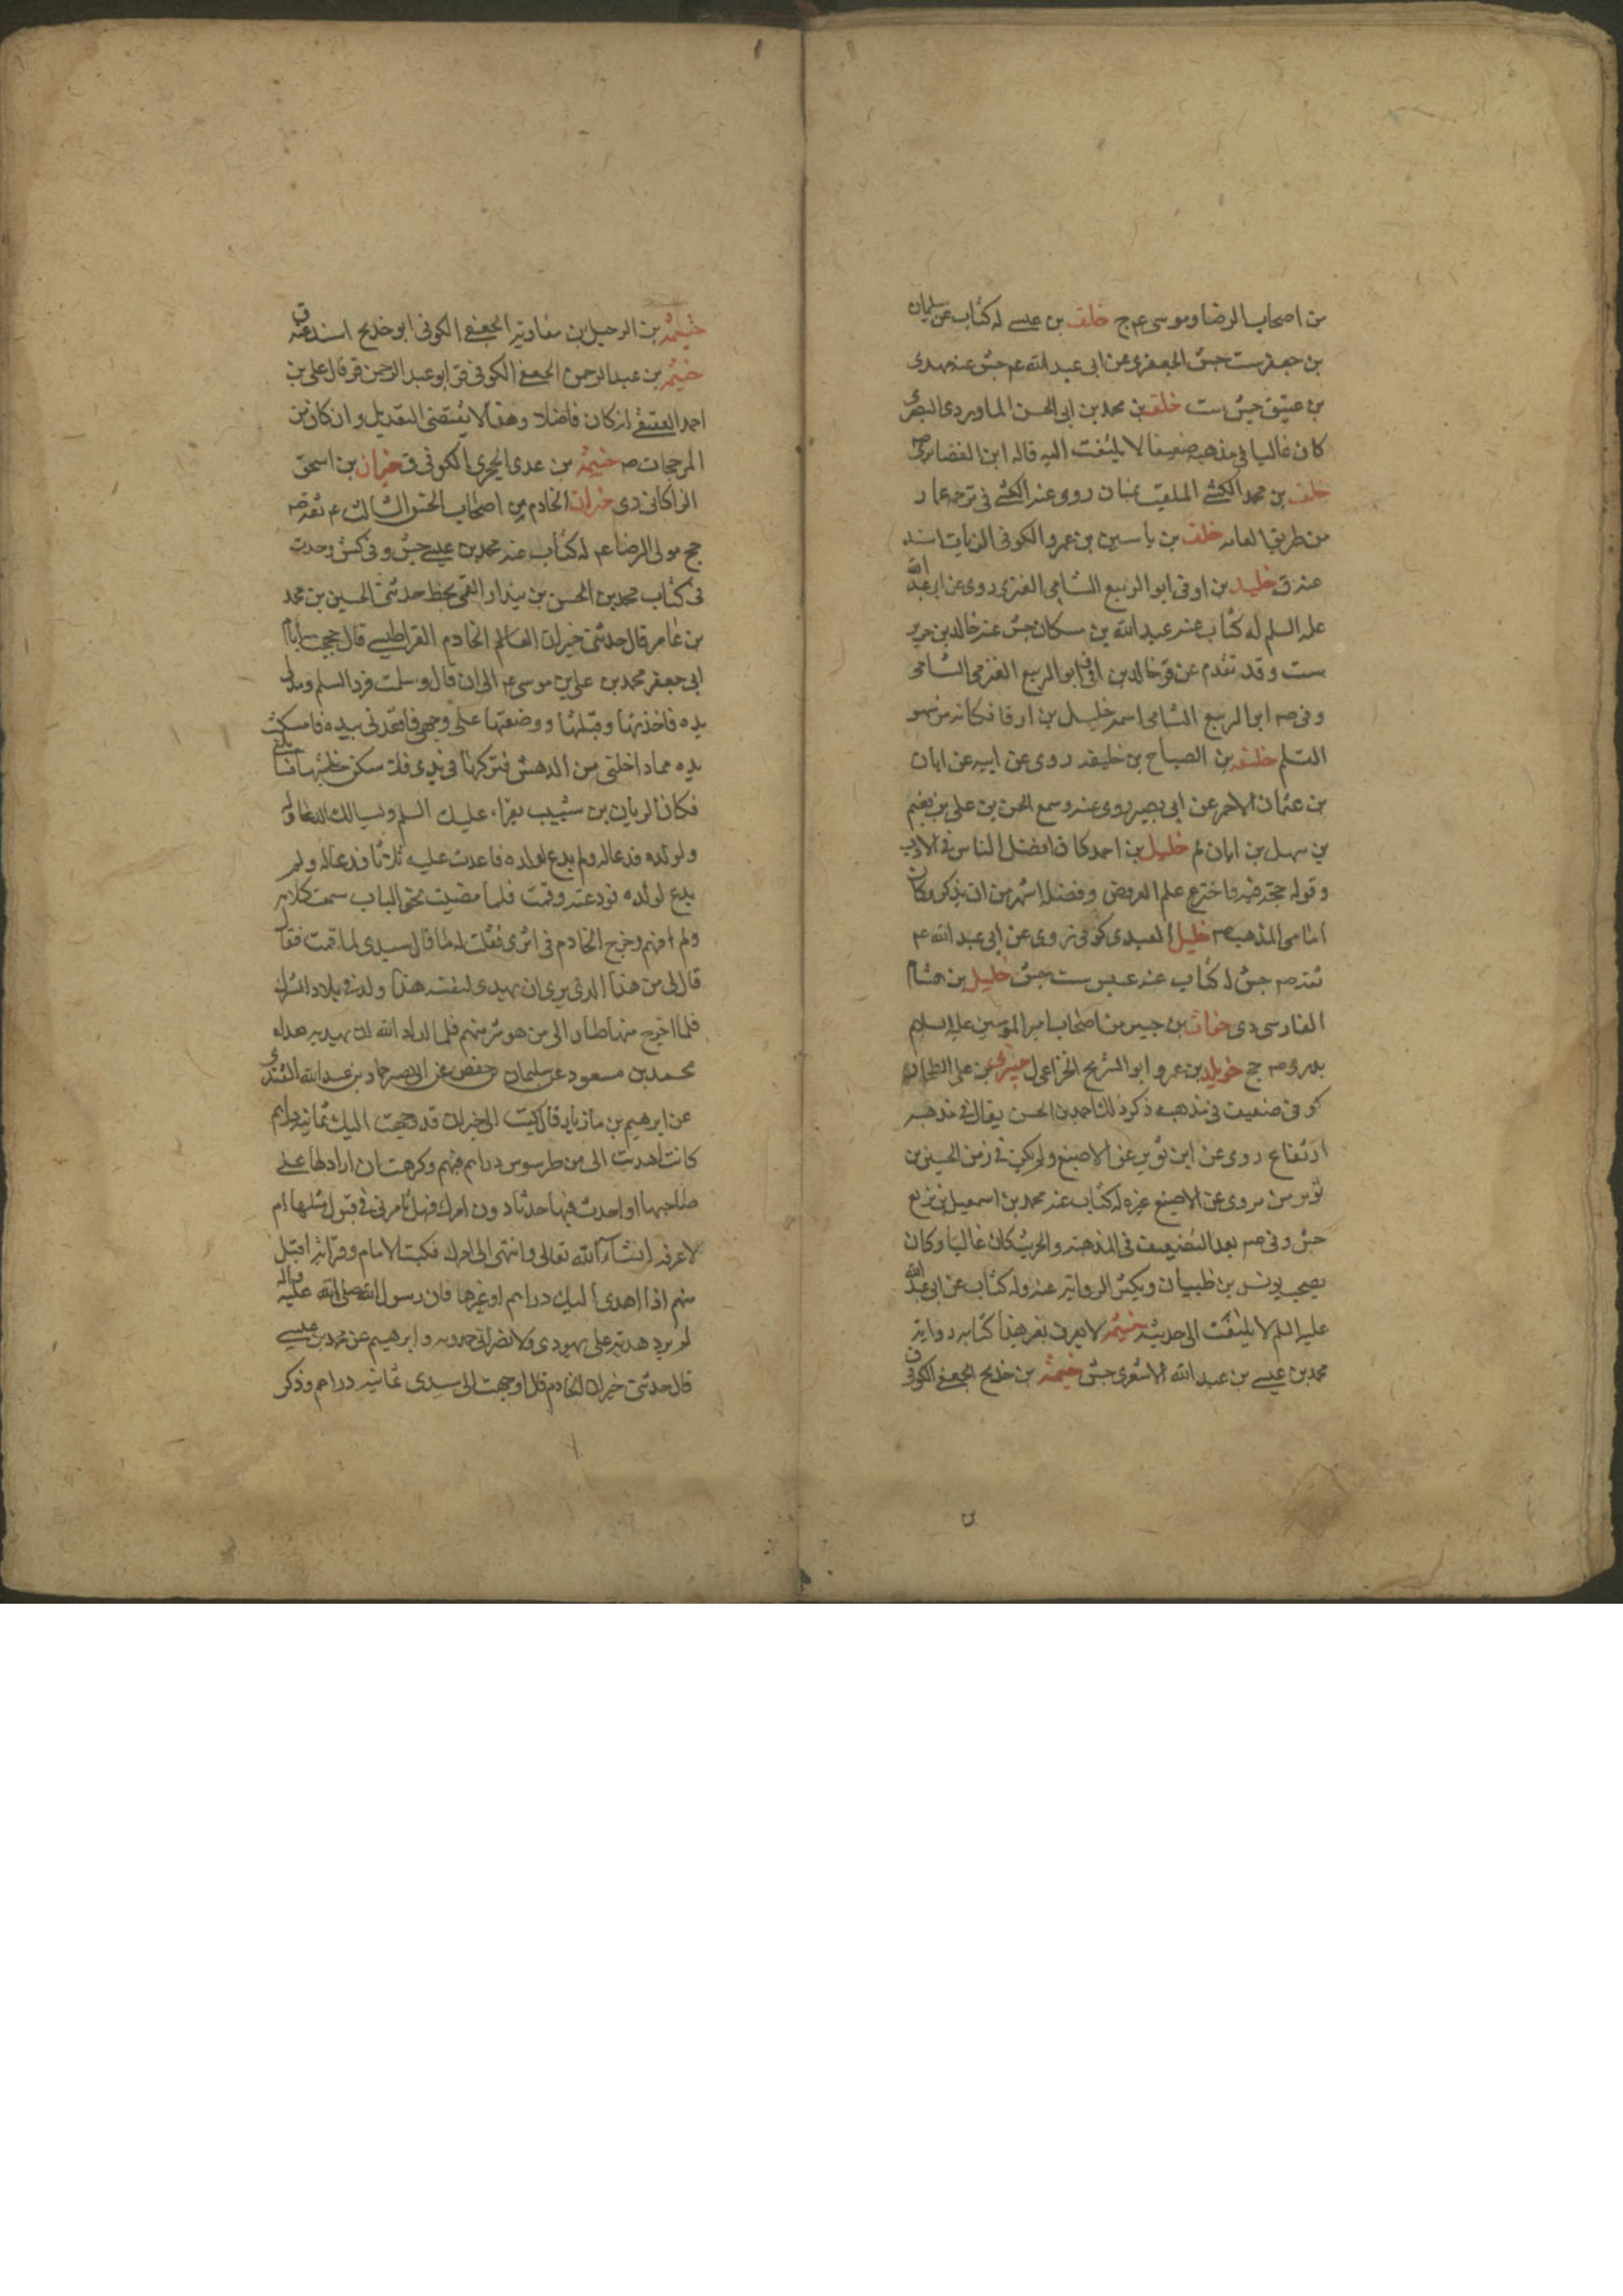 من اصحاب الرضا وموسى ع م ج خلف بن عيسى له كتاب عن سليمان
بن جعفر ست جش الجعفرى عن ابى عبد الله ع م جش عنه مهدى
بن عتيق جش ست خلف بن محمد بن ابى الحسن الماوردى البصرى
كان غاليا فى مذهبه ضعيفا لا يلتفت اليه قاله ابن الغضايرى صه
خلف بن محمد الكشى الملقب بمنان روى عنه الكشى فى ترجمة عمار
من طريق العامه خلف بن ياسين بن عمرو الكوفى الزيات اسند
عنه ق خليد بن اوفى ابو الربيع الشامى العنزى روى عن ابى عبد الله
عليه السلم له كتاب عنه عبد الله بن مسكان جش عنه خالد بن جرير
ست وقد تقدم عن ق خالد بن اوفى ابو الربيع العنزى الشامى
وفى صه ابو الربيع الشامى اسمه خليل بن اوفا فكانه من سهو
القلم خليفه بن الصباح بن خليفه روى عن ابيه عن ابان
بن عثمان الاحمر عن ابى بصير روى عنه وسمع الحسن بن على بن نعيم
بن سهل بن ابان لم خليل بن احمد كان افضل الناس فى الادب
وقوله حجة فيه فاخترع علم العروض وفضله اشهر من ان يذكر وكان
امامى المذهب صه خليل العبدى كوفى روى عن ابى عبد الله ع م
ثقه صه جش له كتاب عنه عبيس ست جش خليل بن هشام
الفارسى دى خوات بن جبير من اصحاب امير المؤمنين عليه السلام
بدرى صه جخ خويلد بن عمرو ابو الشريح الخزاعى ل خيبرى بن على الطحان
كوفى ضعيف فى مذهبه ذكر ذلك احمد بن الحسين يقال فى مذهبه
ارتفاع روى عن ابن ثوير عن الاصبغ ولم يكن فى زمن الحسين بن
ثوير من يروى عن الاصبغ غيره له كتاب عنه محمد بن اسمعيل بن بزيع
جش وفى صه بعد التضعيف فى المذهب والحديث كان غاليا وكان
يصحب يونس بن ظبيان ويكثر الرواية عنه وله كتاب عن ابى عبد الله
عليه السلم لا يلتفت الى حديثه خيثمه لا يعرف بغير هذا كتابه رواية
محمد بن عيسى بن عبد الله الاشعرى جش خيثمه بن خديج الجعفى الكوفى ق
خيثمه بن الرحيل بن معاويه الجعفى الكوفى ابو خديج اسند عنه ق
خيثمه بن عبد الرحمن الجعفى الكوفى ق ابو عبد الرحمن قر قال على بن
احمد العقيقى انه كان فاضلا وهذا لا يقتضى التعديل وان كان من
المرجحات صه خيثمه بن عدى الهجرى الكوفى ق خيران بن اسحق
الزاكانى دى خيران الخادم من اصحاب ابى الحسن الثالث ع م ثقه صه
جخ مولى الرضا ع م له كتاب عنه محمد بن عيسى جش وفى كش وجدت
فى كتاب محمد بن الحسن بن بندار القمى بخطه حدثنى الحسين بن محمد
بن عامر قال حدثنى خيران الخادم القراطيسى قال حججت ايام
ابى جعفر محمد بن على بن موسى ع م الى ان قال وسلمت فرد السلم ومد الى
يده فاخذتها وقبلتها ووضعتها على وجهى فاقعدنى بيده فامسكت
يده مما داخلنى من الدهش فتركها فى يدى فلما سكن خليتها فسائلنى
فكان الريان بن شبيب يقراء عليك السلم ويسالك الدعا له
ولولده فدعا له ولم يدع لولده فاعدت عليه ثلاثا فدعا له ولم
يدع لولده فودعته وقمت فلما مضيت نحو الباب سمعت كلامه
ولم افهم وخرج الخادم فى اثرى فقلت له ما قال سيدى لما قمت فقال
قال لى من هذا الذى يرى ان يهدى لنفسه هذا ولد فى بلاد الشرك
فلما اخرج منها صار الى من هو شر منهم فلما اراد الله ان يهديه هداه
محمد بن مسعود عن سليمان بن حفص عن ابى بصير حماد بن عبد الله القندى
عن ابرهيم بن مهزيار قال كتبت الى خيران قد وجهت اليك ثمانية دراهم
كانت اهديت الى من طرسوس دراهم منهم وكرهت ان اردها على
صاحبها او احدث فيها حدثا دون امرك فهل تامرنى فى قبول مثلها ام
لا اعرفه انشاء الله تعالى وانتهى الى امرك فكتب الامام وقراته اقبل
منهم اذا اهدى اليك دراهم او غيرها فان رسول الله صلى الله عليه واله
لم يرد هدية على يهودى ولا نصرانى حمدويه وابرهيم عن محمد بن عيسى
قال حدثنى خيران الخادم قال وجهت الى سيدى ثمانيه دراهم وذكر